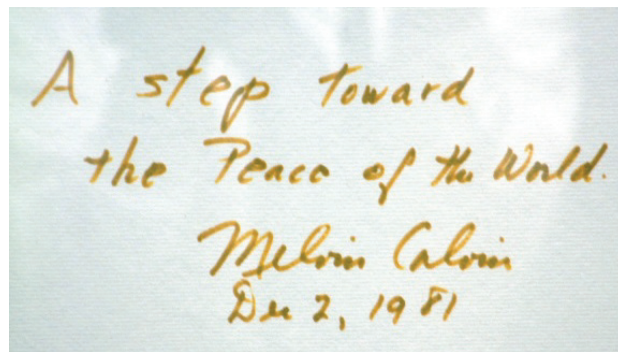 A step toward
the Peace of the World.
Melvin Calvin
Dec 2, 1981